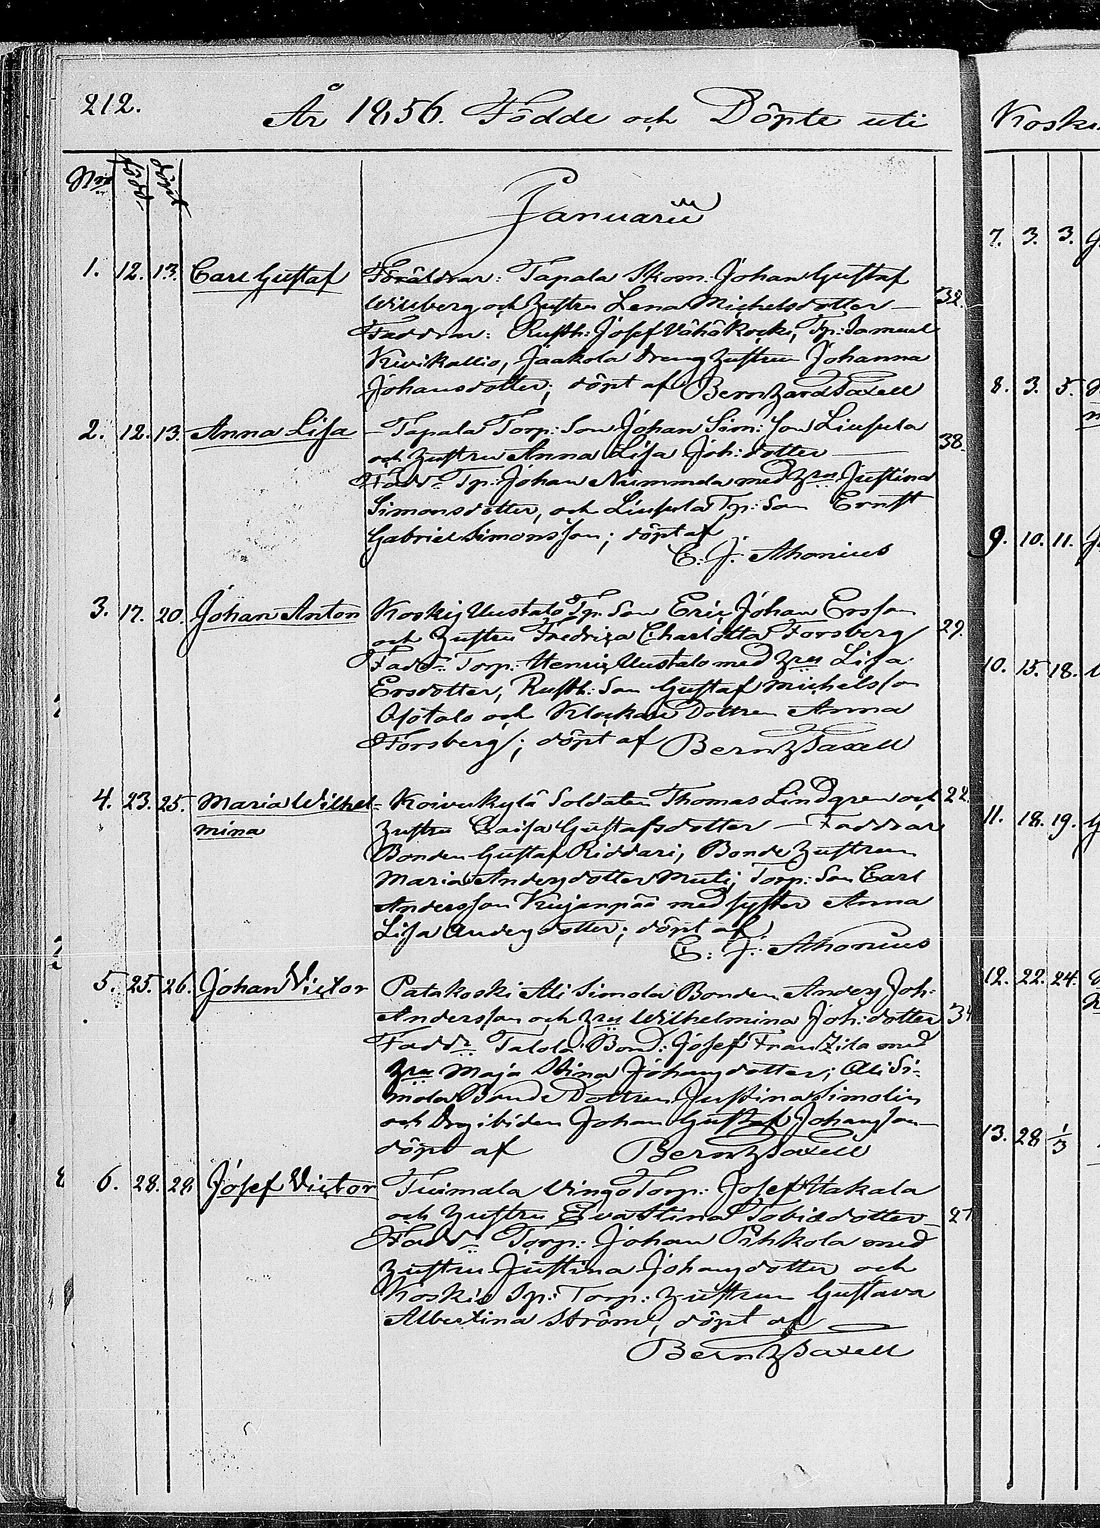 212.
År 1856. Födde och Döpte uti
Nrs född döpt
Januarii
1. 12. 13. Carl Gustaf Föräldrar: Tapala Skom: Johan Gustaf
Willberg och hustru Lena Michelsdotter — 32.
Faddrar: Rusth: Josef Vähäkoski, Tp: Samuel
Kivikallio, Jaakola Dreng hustru Johanna
Johansdotter; döpt af Berntzard Saxell
2. 12. 13. Anna Lisa — Tapala Torp: Son Johan Sim: Son Liupula
och hustru Anna Lisa Joh: dotter — 38.
Fadd: Tp: Johan Nummela med hru Justina
Simonsdotter, och Liupula Tp: Son Ernst
Gabriel Simonsson; döpt af
C. J. Ahonius
3. 17. 20. Johan Anton Koskis Uustalo Tp: Son Eric Johan Ersson
och hustru Fredrica Charlotta Forsberg 29.
Fadd: Torp: Henric Uustalo med hru Lisa
Ersdotter, Rusth: Son Gustaf Michelsson
Ojötalo och Klockare Dottren Anna
Forsberg; döpt af Berntz Saxell
4. 23. 25. Maria Wilhel- Koivukylä Soldaten Thomas Lindgren och 22.
mina hustru Caisa Gustafsdotter — Faddrar
Bonden Gustaf Riddari, Bonde hustrun
Maria Andersdotter Muti, Torp: Son Carl
Andersson Kujanpää med syster Anna
Lisa Andersdotter; döpt af
C. J. Ahonius
5. 25. 26. Johan Victor Patakoski Ali Simola Bonden Anders Joh:
Andersson och hru Wilhelmina Joh: dotter 34
Fadd: Talola Bond: Josef Frantzila med
hru Maja Stina Johansdotter; Ali Si-
mola Bonde Dottren Justina Simolin
och Drg ibidem Johan Gustaf Johansson —
döpt af Berntz Saxell
6. 28. 29. Josef Victor Tuimala Vingo Torp: Josef Hakala
och hustru Eva Stina Tobiasdotter — 27
Fadd: Torp: Johan Pihkola med
hustru Justina Johansdotter och
Koskis Torp: hustrun Gustava
Albertina Ström, döpt af
Berntz Saxell
Koski
7. 3. 3.
8. 3. 5.
9. 10. 11.
10. 15. 18.
11. 18. 19.
12. 22. 24.
13. 28 1/3